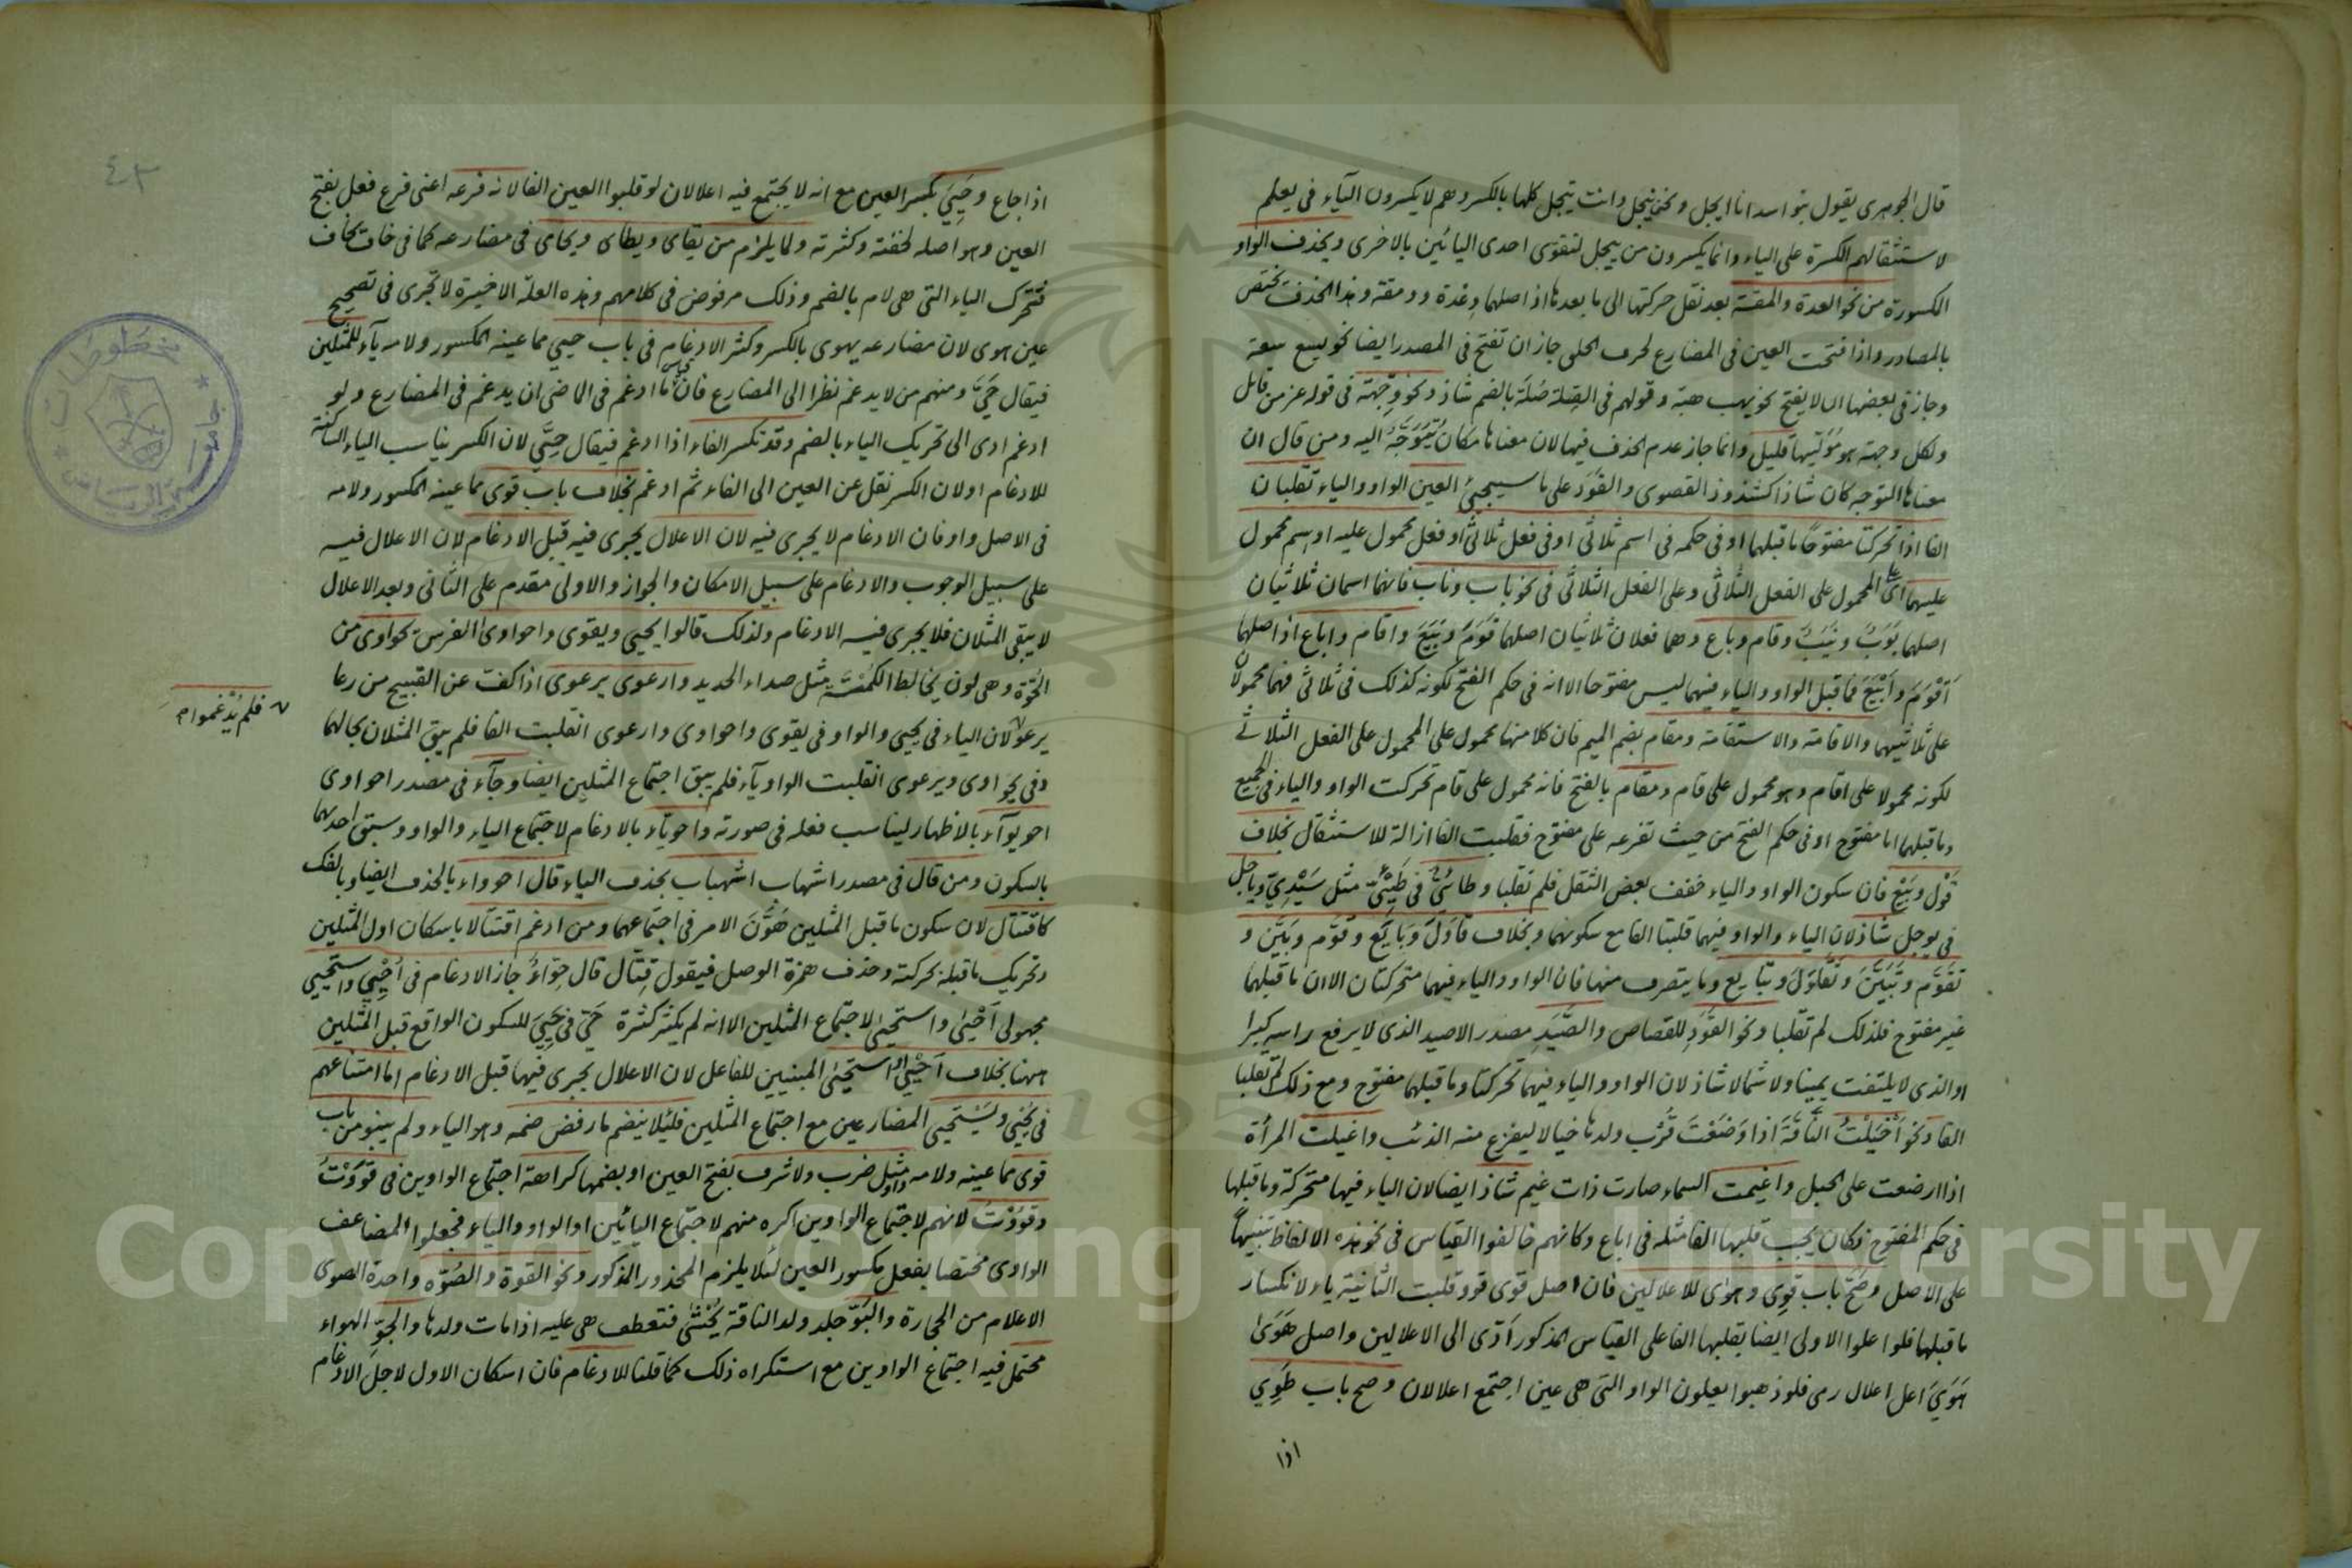 قال الجوهرى يقول بنو اسد انا ايجل ونحن نيجل وانت تيجل كلها بالكسر وهم لا يكسرون الياء فى يعلم
لاستثقالهم الكسرة على الياء وانما يكسرون من ييجل لتقوى احدى اليائين بالاخرى ويحذف الواو
المكسورة من نحو العدة والمقة بعد نقل حركتها الى ما بعدها اذ اصلهما وعدة وومقة وهذا الحذف يختص
بالمصادر واذا فتحت العين فى المضارع لحرف الحلق جاز ان تفتح فى المصدر ايضا نحو يسع سعة
وجاز فى بعضها ان لا يفتح نحو يهب هبة وقولهم فى الصلة صلة بالضم شاذ ونحو وجهة فى قوله عز من قائل
ولكل وجهة هو موليها قليل وانما جاز عدم الحذف فيها لان معناها مكان يتوجه اليه ومن قال ان
معناها التوجه كان شاذا كشذوذ القصوى والقود على ما سيجيئ العين الواو والياء تقلبان
الفا اذا تحركتا مفتوحا ما قبلهما او فى حكمه فى اسم ثلاثى او فى فعل ثلاثى او فعل محمول عليه او اسم محمول
عليهما اى على المحمول على الفعل الثلاثى وعلى الفعل الثلاثى فى نحو باب وناب فانهما اسمان ثلاثيان
اصلهما بوب ونيب وقام وباع وهما فعلان ثلاثيان اصلهما قوم وبيع واقام واباع اذ اصلهما
اقوم وابيع فما قبل الواو والياء فيهما ليس مفتوحا الا انه فى حكم الفتح لكونه كذلك فى ثلاثى فهما محمولان
على ثلاثيهما والاقامة والاستقامة ومقام بضم الميم فان كلا منها محمول على المحمول على الفعل الثلاثى
لكونه محمولا على اقام وهو محمول على قام ومقام بالفتح فانه محمول على قام تحركت الواو والياء فى الجميع
وما قبلهما اما مفتوح او فى حكم الفتح من حيث تفرعه على مفتوح فقلبت الفا ازالة للاستثقال بخلاف
قول وبيع فان سكون الواو والياء خفف بعض الثقل فلم تقلبا وطائى فى طيئ مثل سيدى وياجل
فى يوجل شاذ لان الياء والواو فيهما قلبتا الفا مع سكونهما وبخلاف قاول وبايع وقوم وبين و
تقوم وتبين وتقاول وتبايع وما يتصرف منها فان الواو والياء فيهما متحركتان الا ان ما قبلهما
غير مفتوح فلذلك لم تقلبا ونحو القود للقصاص والصيد مصدر الاصيد الذى لا يرفع راسه كبرا
او الذى لا يلتفت يمينا ولا شمالا شاذ لان الواو والياء فيهما تحركتا وما قبلهما مفتوح ومع ذلك لم تقلبا
الفا ونحو اخيلت الناقة اذا وضعت قرب ولدها خيالا ليفزع منه الذئب واغيلت المرأة
اذا ارضعت على الحبل واغيمت السماء صارت ذات غيم شاذ ايضا لان الياء فيها متحركة وما قبلها
فى حكم المفتوح فكان يجب قلبها الفا مثله فى اباع وكانهم خالفوا القياس فى نحو هذه الالفاظ تنبيها
على الاصل وصح باب قوى وهوى للاعلالين فان اصل قوى قوو قلبت الثانية ياء لانكسار
ما قبلها فلو اعلوا الاولى ايضا بقلبها الفا على القياس المذكور ادى الى الاعلالين واصل هوى
هوى اعل اعلال رمى فلو ذهبوا يعلون الواو التى هى عين اجتمع اعلالان وصح باب طوى
اذا
اذا جاع وحيى بكسر العين مع انه لا يجتمع فيه اعلالان لو قلبوا العين الفا لانه فرعه اعنى فرع فعل بفتح
العين وهو اصله لخفته وكثرته ولما يلزم من يقاى ويطاى ويحاى فى مضارعه كما فى خاف يخاف
فتحرك الياء التى هى لام بالضم وذلك مرفوض فى كلامهم وهذه العلة الاخيرة لا تجرى فى تصحيح
عين هوى لان مضارعه يهوى بالكسر وكثر الادغام فى باب حيى مما عينه المكسور ولامه ياء للمثلين
فيقال حى ومنهم من لا يدغم نظرا الى المضارع فان ما ادغم فى الماضى ان يدغم فى المضارع ولو
ادغم ادى الى تحريك الياء بالضم وقد تكسر الفاء اذا ادغم فيقال حى لان الكسر يناسب الياء الساكنة
للادغام او لان الكسر نقل عن العين الى الفاء ثم ادغم بخلاف باب قوى مما عينه المكسور ولامه
فى الاصل واو فان الادغام لا يجرى فيه لان الاعلال يجرى فيه قبل الادغام لان الاعلال فيه
على سبيل الوجوب والادغام على سبيل الامكان والجواز والاولى مقدم على الثانى وبعد الاعلال
لا يبقى المثلان فلا يجرى فيه الادغام ولذلك قالوا يحيى ويقوى واحواوى الفرس يحواوى من
الحوة وهى لون يخالط الكمتة مثل صداء الحديد وارعوى يرعوى اذا كف عن القبيح من رعا
يرعو لان الياء فى يحيى والواو فى يقوى واحواوى وارعوى انقلبت الفا فلم يبق المثلان بحالهما
فلم يدغموا
وفى يحواوى ويرعوى انقلبت الواو ياء فلم يبق اجتماع المثلين ايضا وجاء فى مصدر احواوى
احويواء بالاظهار ليناسب فعله فى صورته واحوياء بالادغام لاجتماع الياء والواو وسبق احديهما
بالسكون ومن قال فى مصدر اشهاب اشهباب بحذف الياء قال احوواء بالحذف ايضا وبالفك
كاقتتال لان سكون ما قبل المثلين هون الامر فى اجتماعهما ومن ادغم اقتتالا باسكان اول المثلين
وتحريك ما قبله بحركته وحذف همزة الوصل فيقول قتال قال حواء جاز الادغام فى احيى واستحيى
مجهولى احيى واستحيى لاجتماع المثلين الا انه لم يكثر كثرة حى فى حيى للسكون الواقع قبل المثلين
ههنا بخلاف احيى واستحيى المبنيين للفاعل لان الاعلال يجرى فيهما قبل الادغام اما امتناعهم
فى يحيى ويستحيى المضارعين مع اجتماع المثلين فلئلا ينضم ما رفض ضمه وهو الياء ولم يبنو من باب
قوى مما عينه ولامه واو مثل ضرب ولا شرف بفتح العين او بضمها كراهة اجتماع الواوين فى قووت
وقووت لانهم لاجتماع الواوين اكره منهم لاجتماع اليائين او الواو والياء فجعلوا المضاعف
الواوى مختصا بفعل مكسور العين لئلا يلزم المحذور المذكور ونحو القوة والصوة واحدة الصوى
الاعلام من الحجارة والبو جلد ولد الناقة يحشى فتعطف هى عليه اذا مات ولدها والجو الهواء
محتمل فيه اجتماع الواوين مع استكراه ذلك كما قلنا للادغام فان اسكان الاول لاجل الادغام
٤٣
Copyright © King Saud University
195